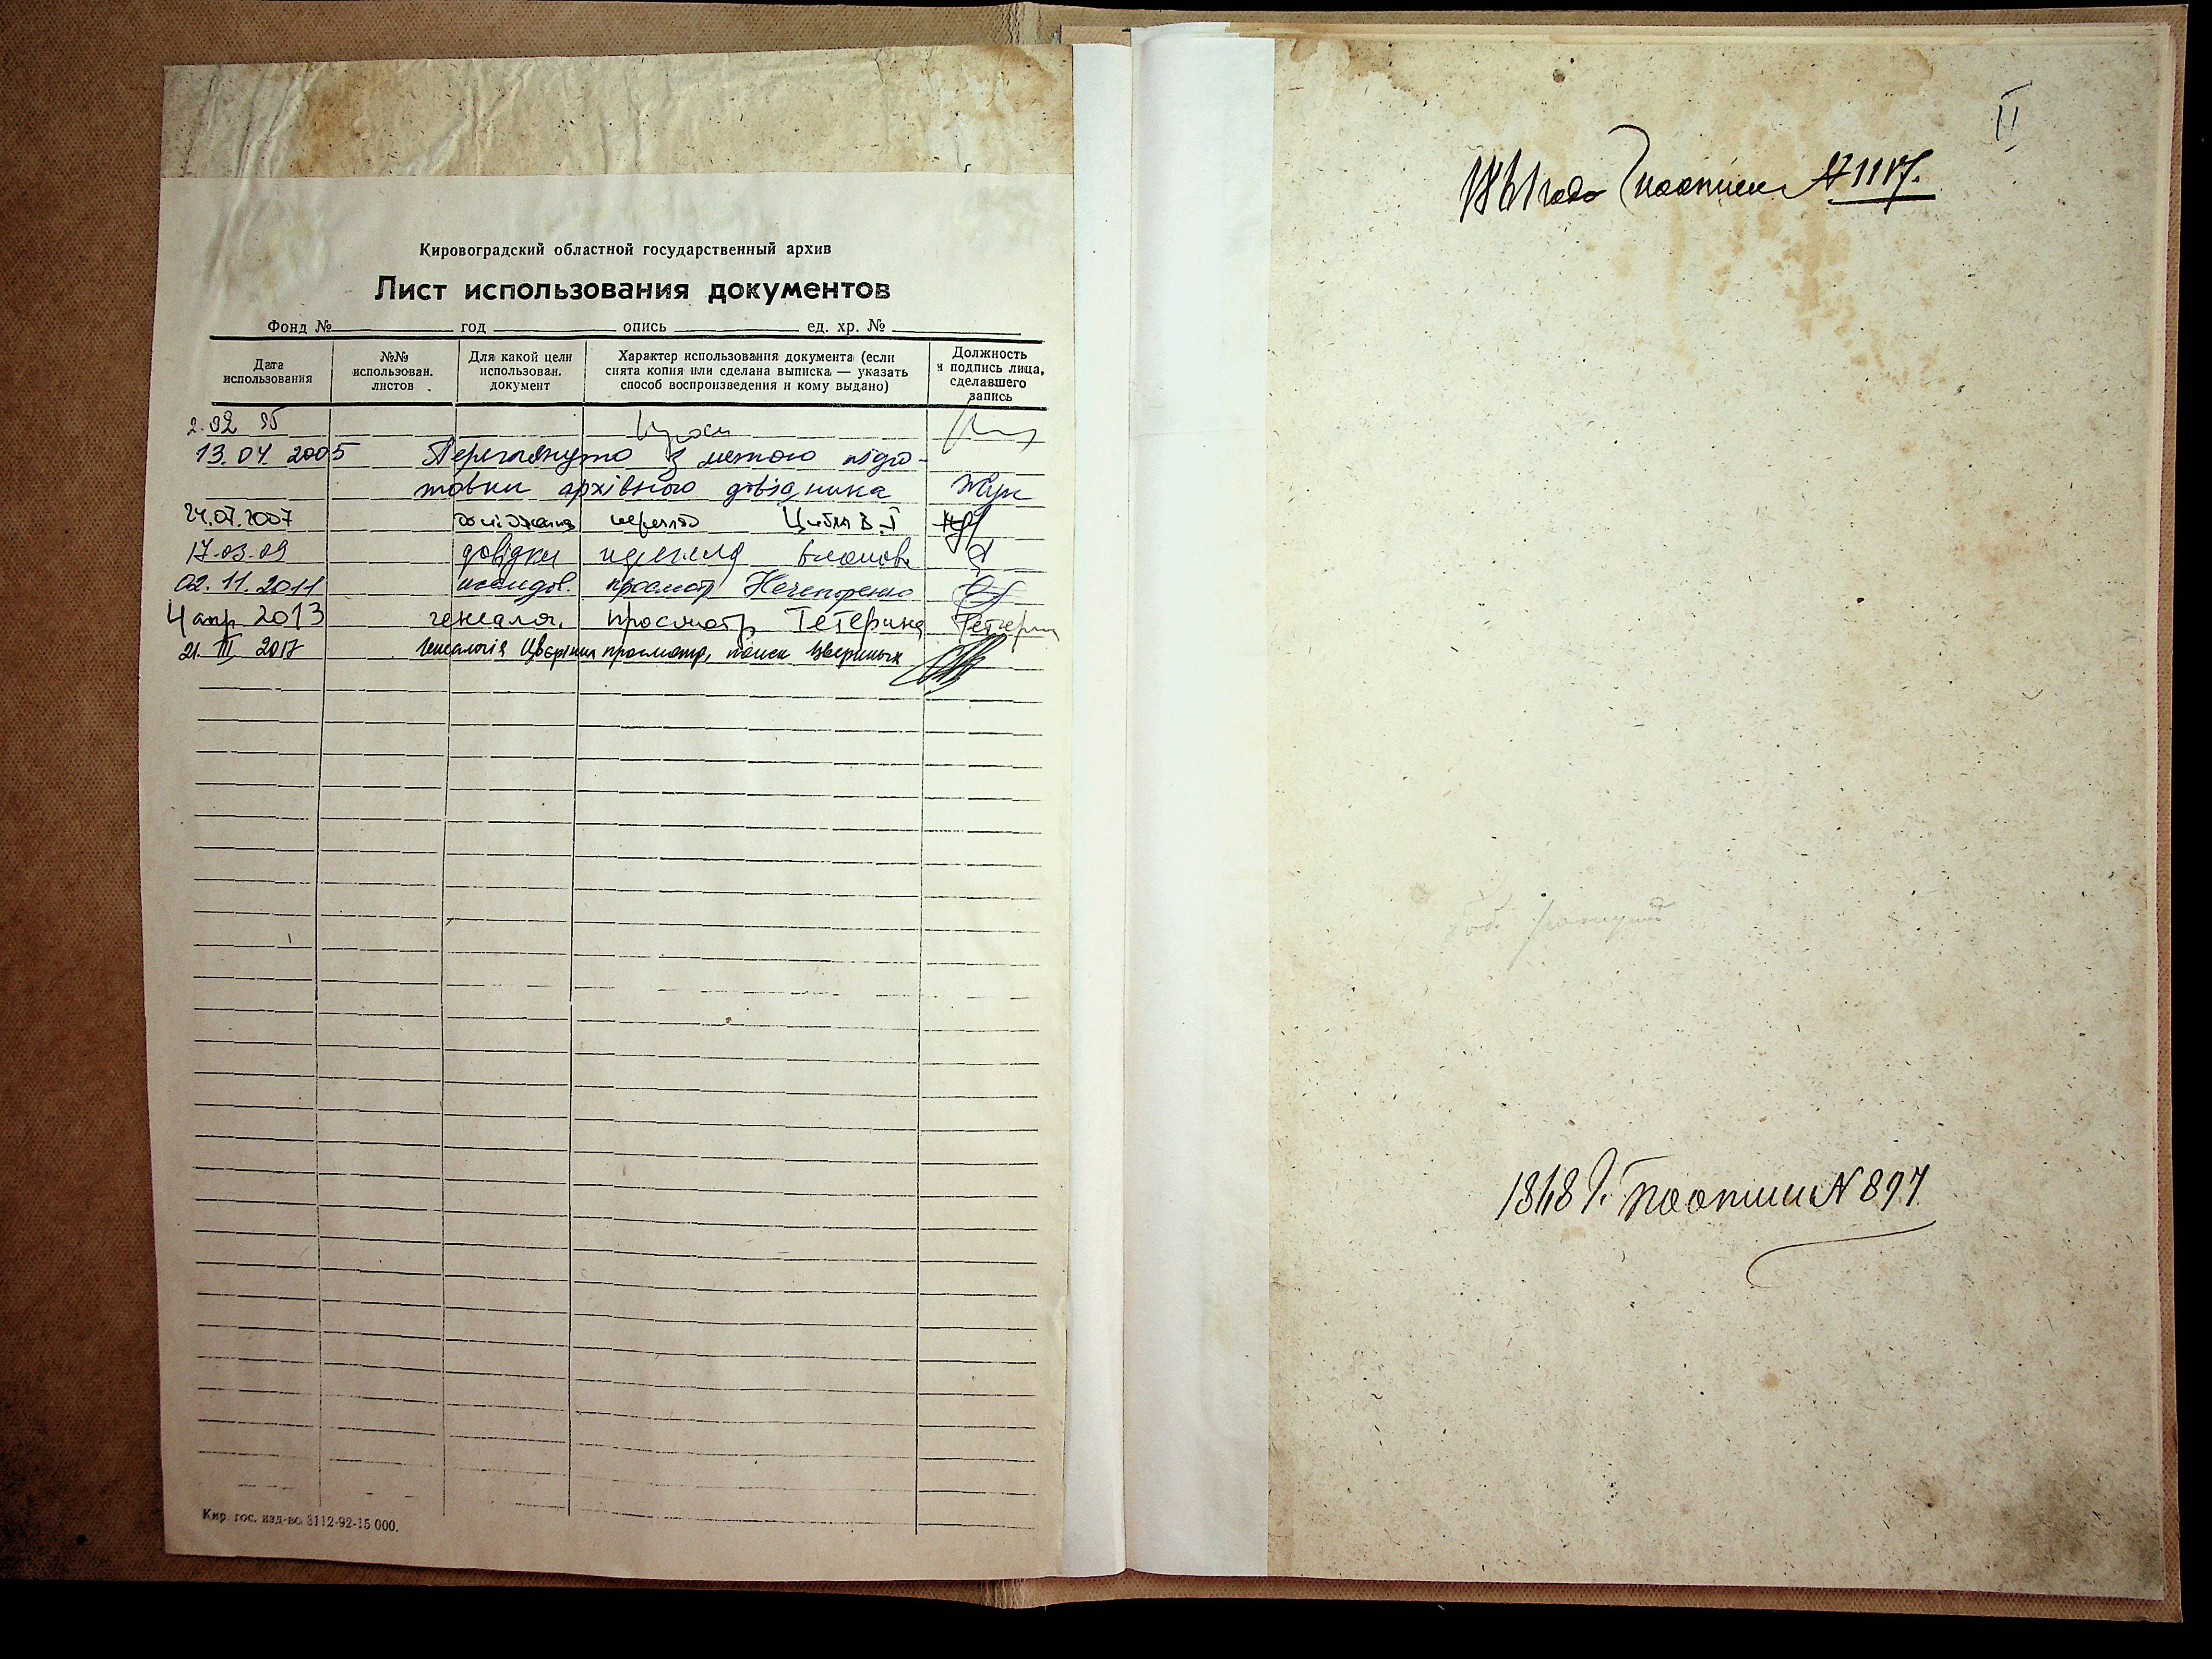 Кировоградский областной государственный архив
Лист использования документов
Фонд № год опись ед. хр. №
Дата использования
№№ использован. листов
Для какой цели использован. документ
Характер использования документа (если снята копия или сделана выписка — указать способ воспроизведения и кому выдано)
Должность и подпись лица, сделавшего запись
2.02 95
13.04.2005 Переглянуто з метою підго-
товки архівного довідника
24.07.2007 перегляд
17.03.09 довідки перегляд
02.11.2011 исследов. просмотр Нечипоренко
4 апр 2013 генеалог. просмотр Тетерина Тетерин
21. III 2017 Генеалогія Цвєріних просмотр, поиск Цвериных
Кир. гос. изд-во. 3112-92-15 000.
II
года по описи №
1848 г. по описи № 897